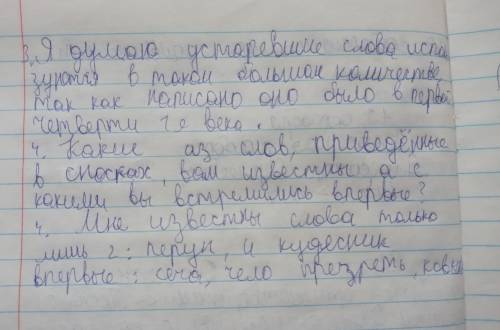 3. Я думаю устаревшие слова испол
зуются в таком большом количестве,
так как написано оно было в первой
четверти 1е века.
4. Какие аз слов, приведённые
в сносках, вам известны а с
какими вы встретились впервые?
4. Мне известны слова только
лишь 2: перун, и кудесник
впервые: сеча, чело презреть, ковыл